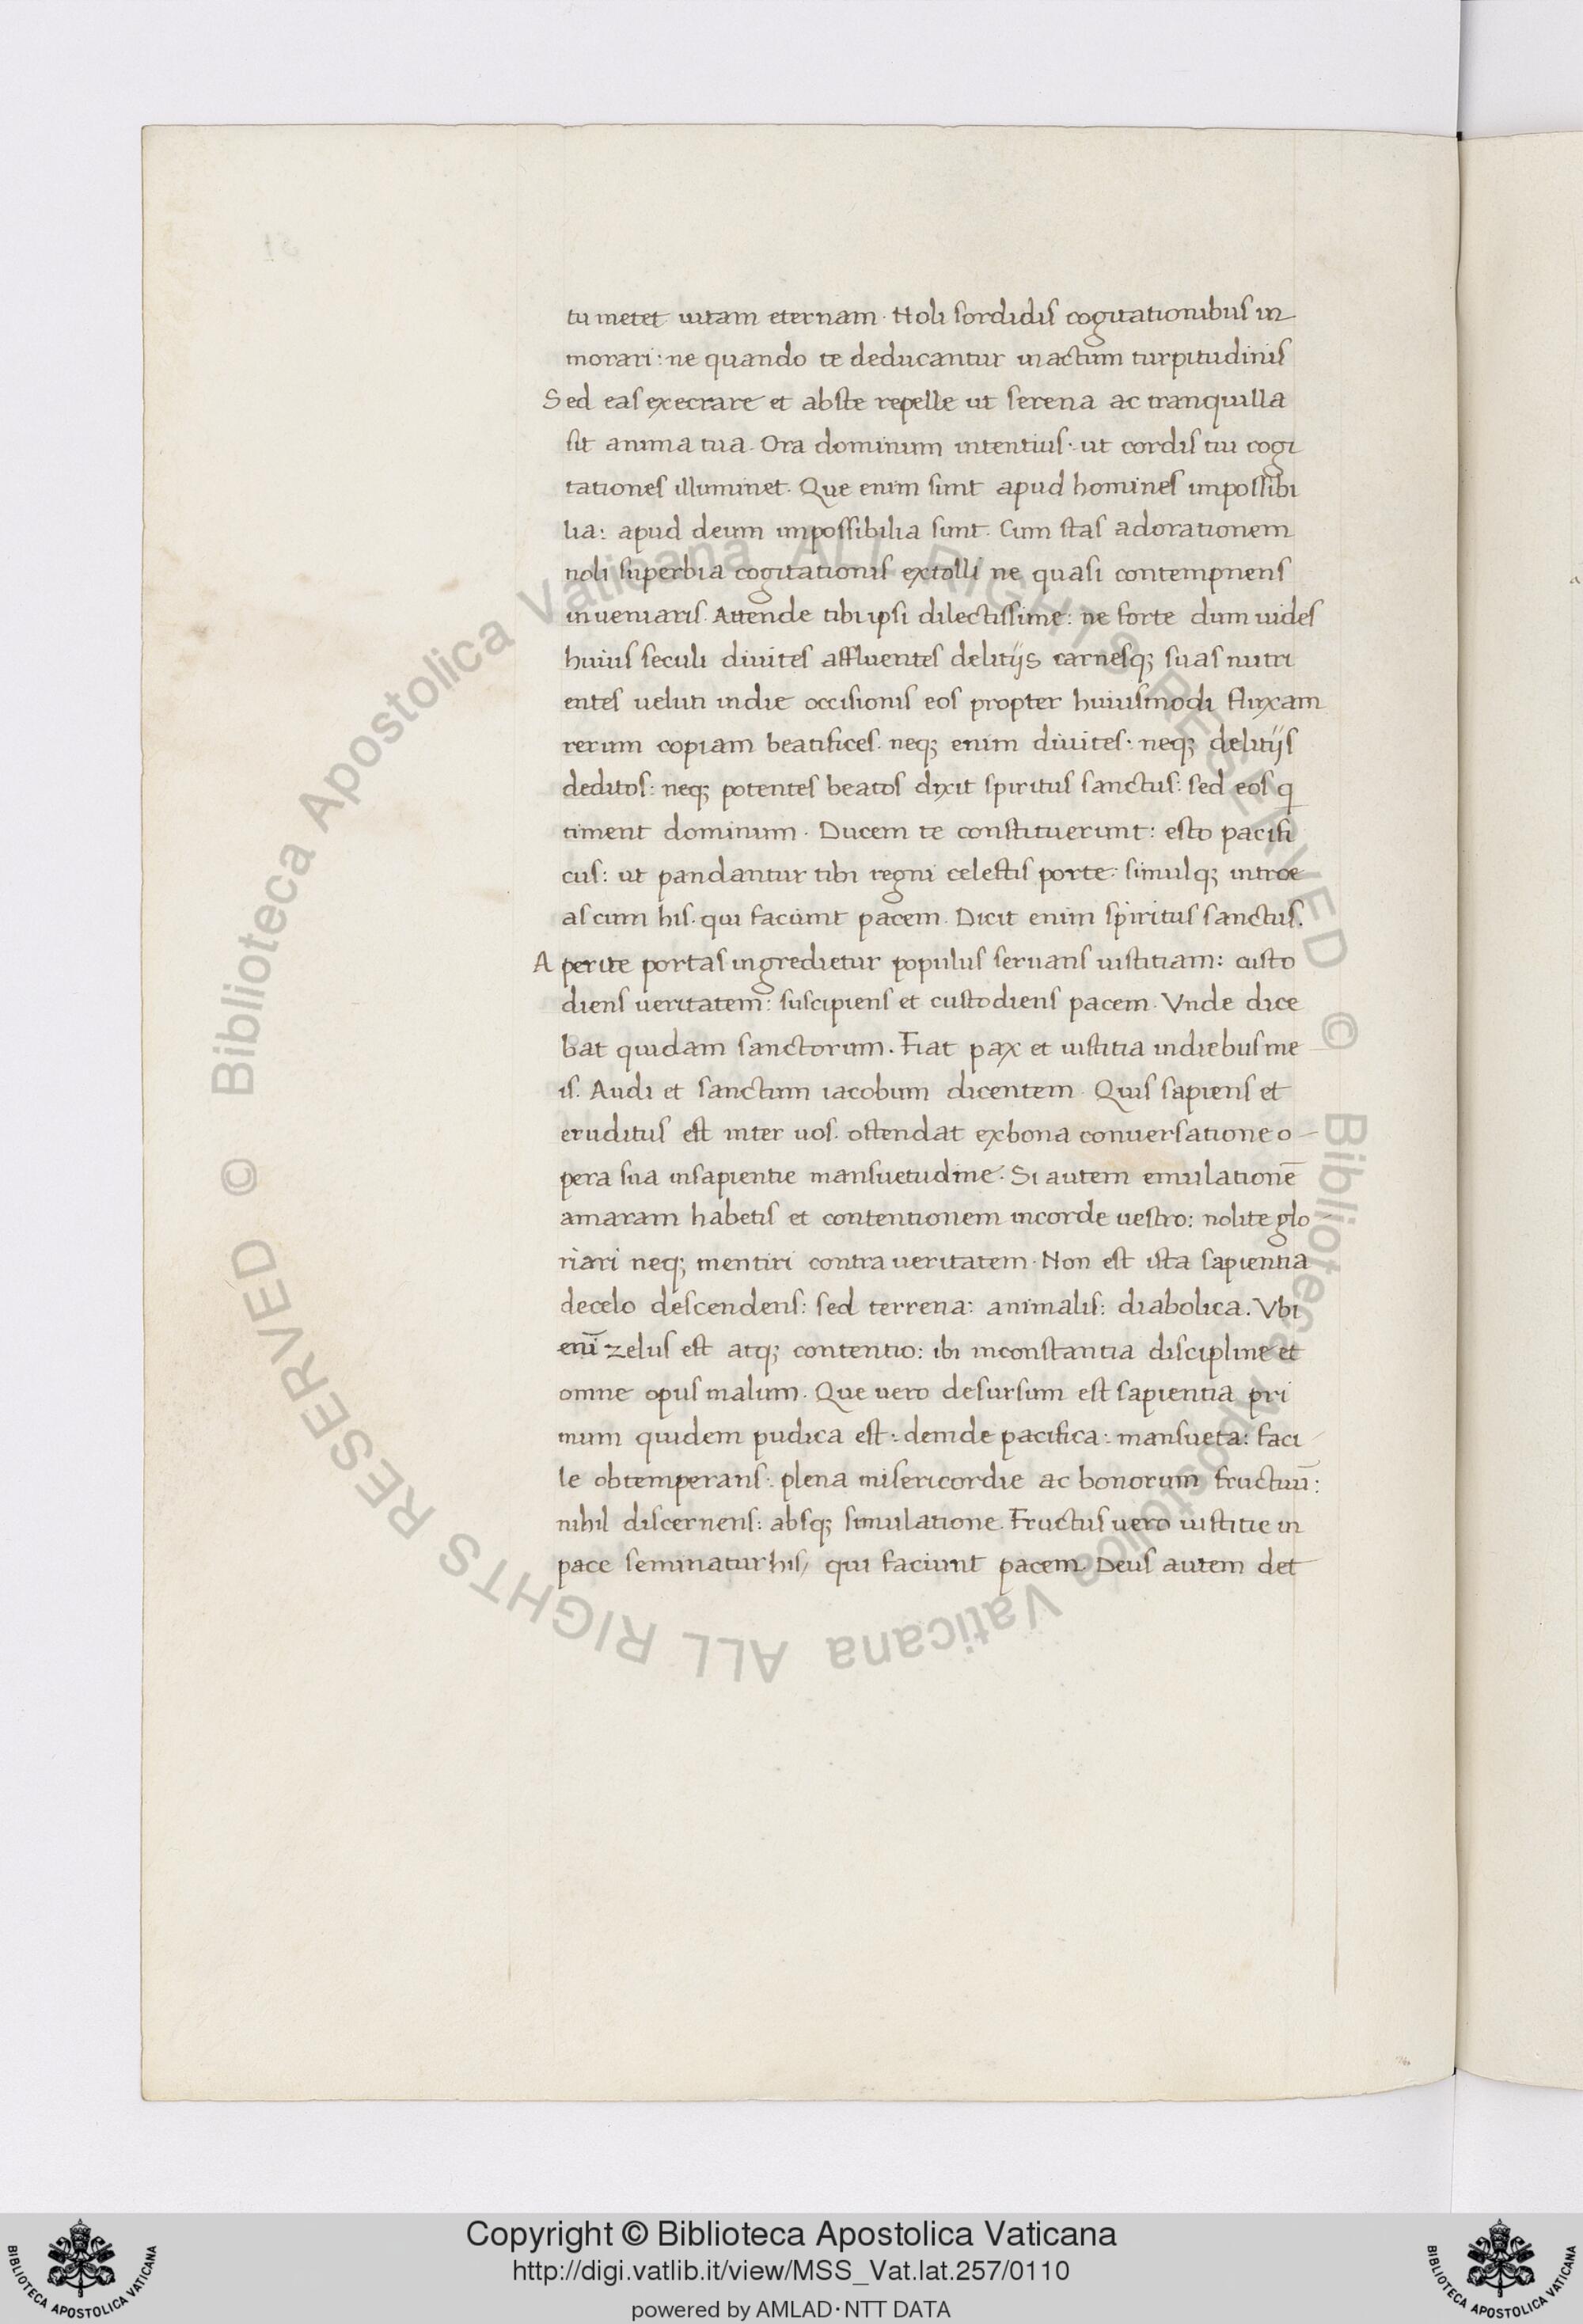 tu metet uitam eternam. Noli sordidis cogitationibus in
morari: ne quando te deducantur inactum turpitudinis
Sed eas execrare et abste repelle ut serena ac tranquilla
sit anima tua. Ora dominum intentius. ut cordis tui cogi
tationes illuminet. Que enim sunt apud homines impossibi
lia: apud deum impossibilia sunt. Cum stas adorationem
noli superbia cogitationis extolli ne quasi contempnens
inueniaris. Attende tibi ipsi dilectissime: ne forte dum uides
huius seculi diuites affluentes delitijs carnesq; suas nutri
entes ueluti indie occisionis eos propter huiusmodi fluxam
rerum copiam beatifices. neq; enim diuites. neq; delitijs
deditos: neq; potentes beatos dixit spiritus sanctus: sed eos q
timent dominum. Ducem te constituerunt: esto pacifi
cus: ut pandantur tibi regni celestis porte: simulq; introe
as cum his. qui faciunt pacem. Dicit enim spiritus sanctus.
Aperite portas ingredietur populus seruans iustitiam: custo
diens ueritatem: suscipiens et custodiens pacem. Vnde dice
bat quidam sanctorum. Fiat pax et iustitia indiebus me
is. Audi et sanctum iacobum dicentem. Quis sapiens et
eruditus est inter uos. ostendat exbona conuersatione o-
pera sua insapientie mansuetudine. Si autem emulationē
amaram habetis et contentionem incorde uestro: nolite glo-
riari neq; mentiri contra ueritatem. Non est ista sapientia
decelo descendens: sed terrena: animalis: diabolica. Vbi
eni̅ zelus est atq; contentio: ibi inconstantia discipline et
omne opus malum. Que uero desursum est sapientia pri
mum quidem pudica est: deinde pacifica: mansueta: faci-
le obtemperans. plena misericordie ac bonorum fructuū:
nihil discernens: absq; simulatione. Fructus uero iustitie in
pace seminatur his, qui faciunt pacem. Deus autem det
© Biblioteca Apostolica Vaticana ALL RIGHTS RESERVED © Biblioteca Apostolica Vaticana ALL RIGHTS RESERVED
Copyright © Biblioteca Apostolica Vaticana
http://digi.vatlib.it/view/MSS_Vat.lat.257/0110
powered by AMLAD·NTT DATA
BIBLIOTECA APOSTOLICA VATICANA
BIBLIOTECA APOSTOLICA VATICANA